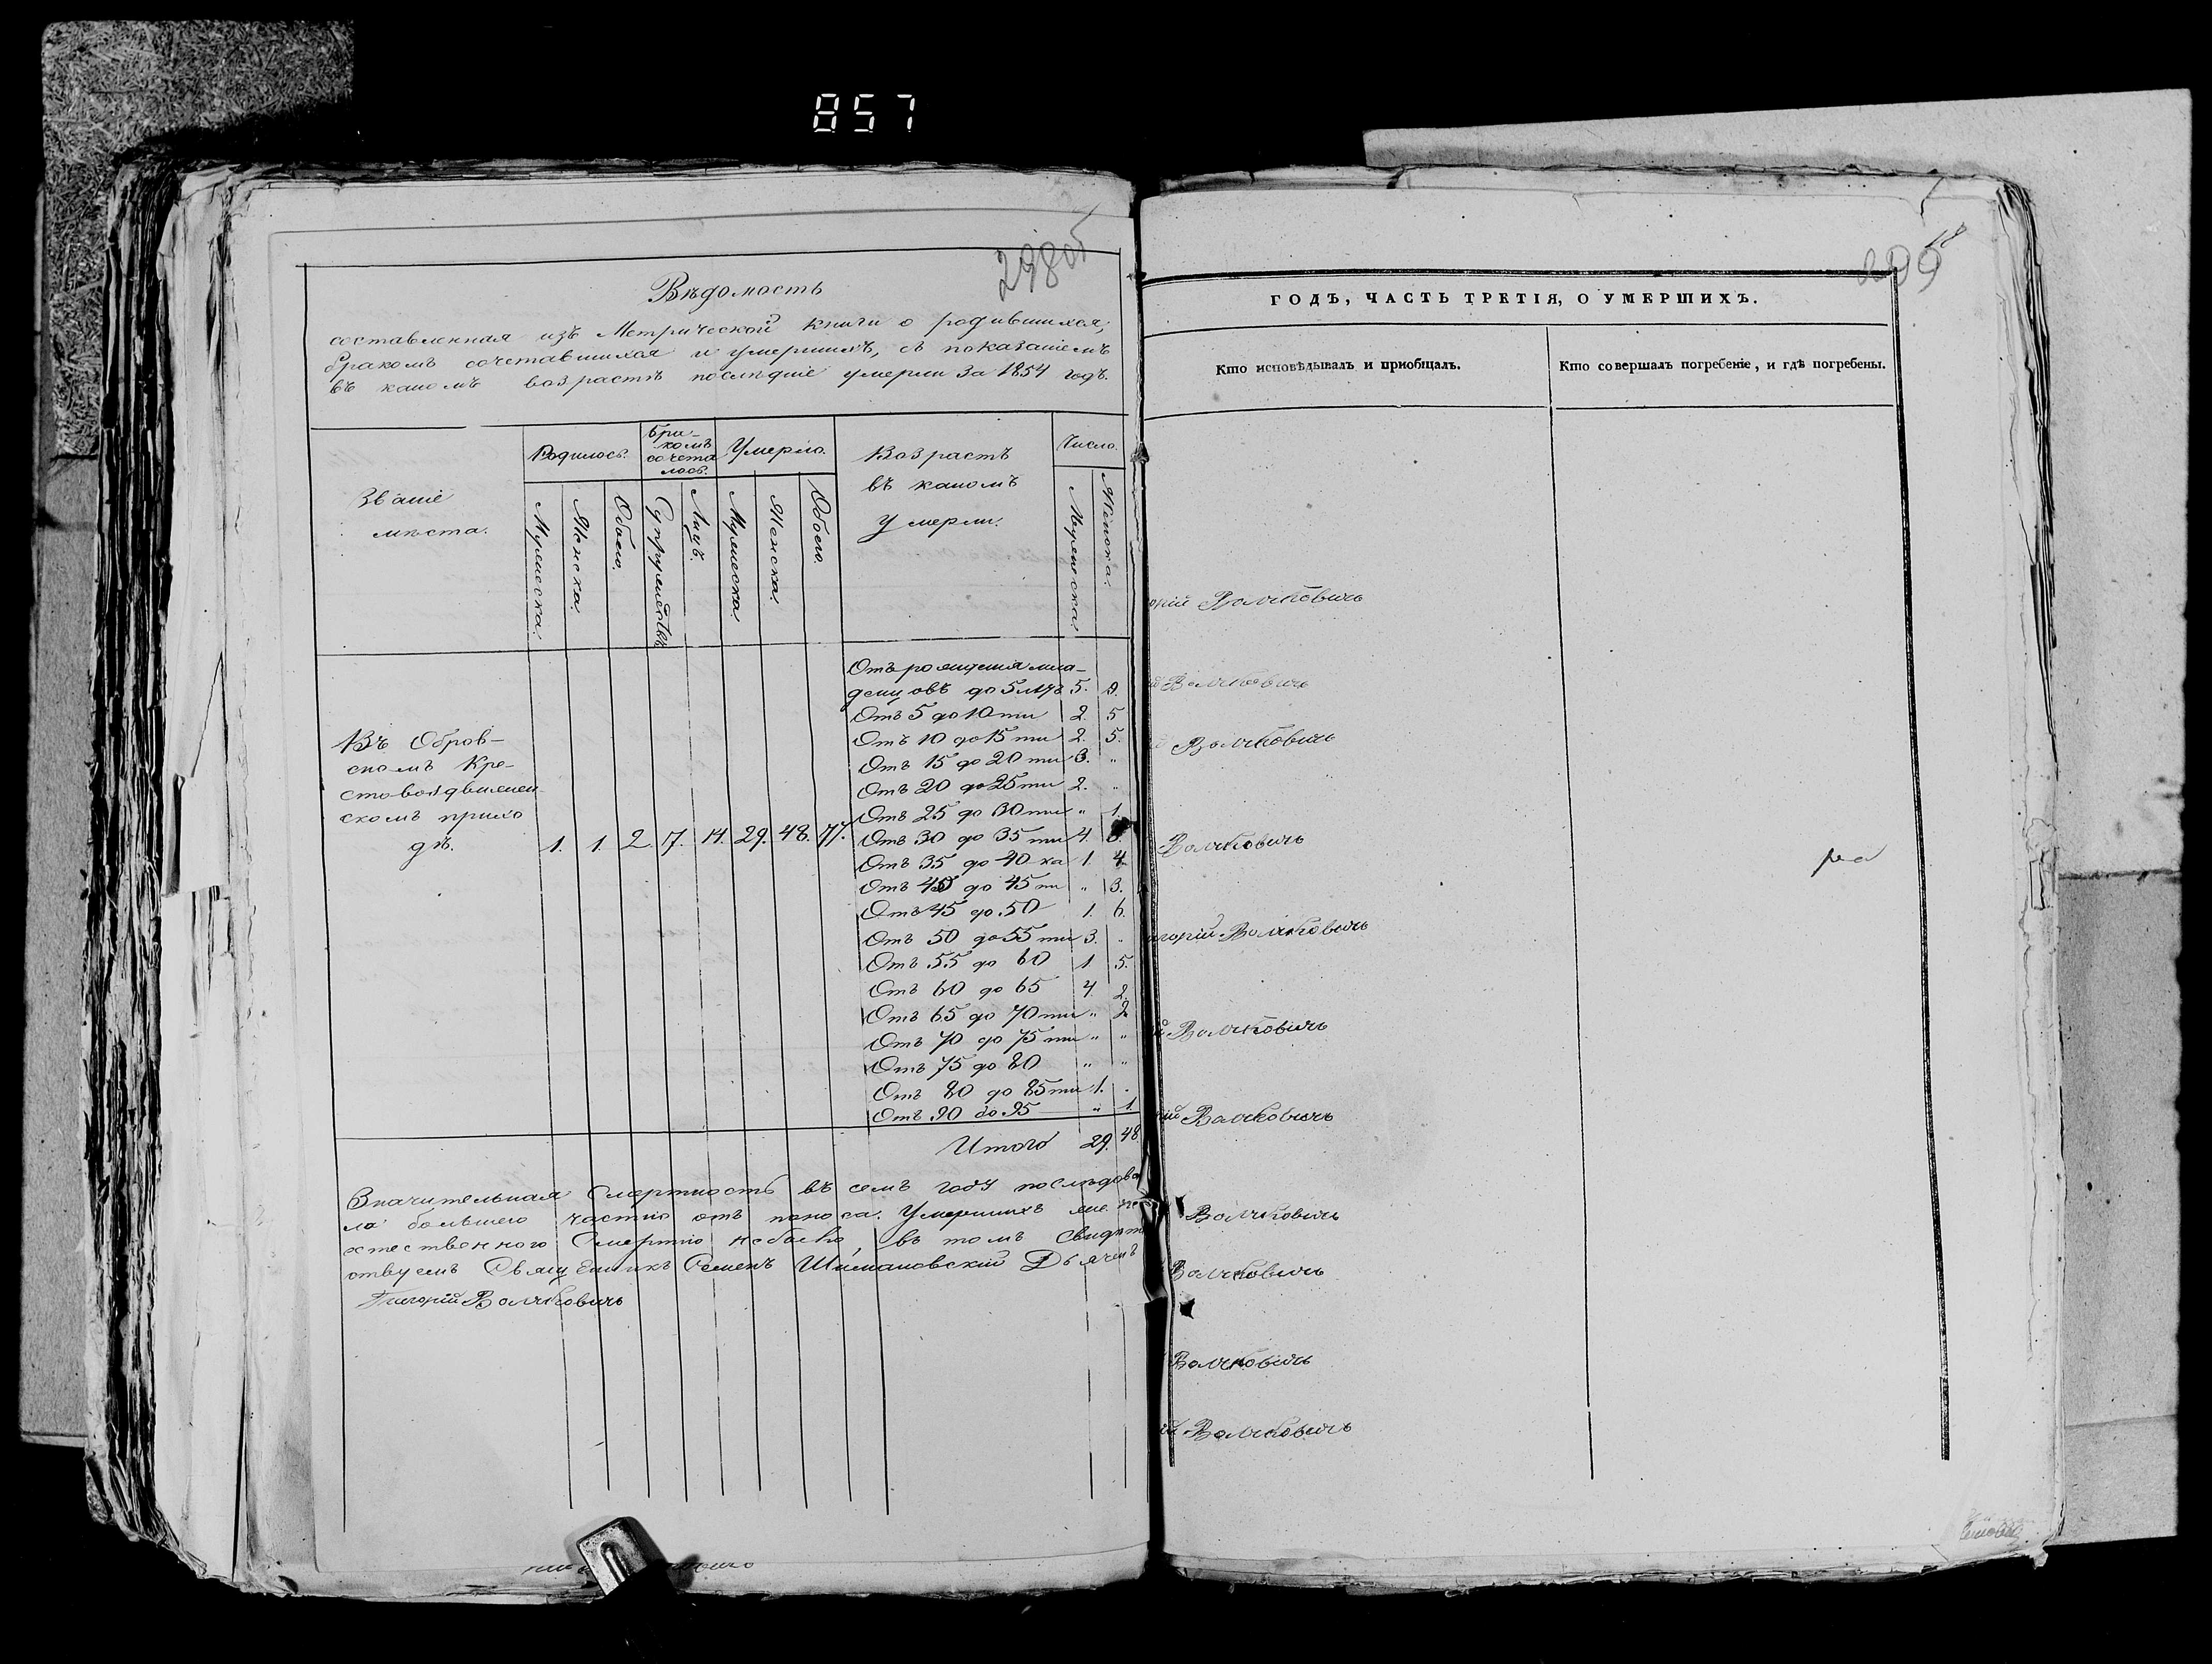 857
298об
Вѣдомость
составленная изъ Метрической книги о родившихся,
бракомъ сочетавшихся и умершихъ, съ показаніемъ
въ какомъ возрастѣ послѣдніе умерли за 1854 годъ.
Званіе
мѣста.
Родилось.
Бра-
комъ
сочета
лось.
Умерло.
Возрастъ
въ какомъ
умерли.
Число.
Мужеска.
Женска.
Обоего.
Супружествъ
Лицъ.
Мужеска
Женска.
Обоего.
Мужеска.
Женска.
Въ Обров-
скомъ Кре-
стовоздвижен
скомъ прихо
дѣ.
1. 1. 2. 7. 14. 29. 48. 77.
Отъ рожденія мла-
денцовъ до 5 лѣтъ 5. 9.
Отъ 5 до 10 ти 2. 5
Отъ 10 до 15 ти 2. 5.
Отъ 15 до 20 ти 3. "
Отъ 20 до 25 ти 2. "
Отъ 25 до 30 ти " 1.
Отъ 30 до 35 ти 4.
Отъ 35 до 40 ка 1. 4
Отъ 40 до 45 ти " 3.
Отъ 45 до 50 1. 6.
Отъ 50 до 55 ти 3. "
Отъ 55 до 60 1 5.
Отъ 60 до 65 4 2.
Отъ 65 до 70 ти " 2
Отъ 70 до 75 ти " "
Отъ 75 до 80 " "
Отъ 80 до 85 ти 1. "
Отъ 90 до 95 " 1.
Итого 29. 48.
Значительная смертность въ семъ году послѣдова
ла большею частію отъ поноса. Умершихъ же не
естественного смертію небыло, въ томъ свидѣт
отвуемъ Священникъ Семенъ Шимановскій Дьячекъ
Григорій Волчковичъ
299
ГОДЪ, ЧАСТЬ ТРЕТІЯ, О УМЕРШИХЪ.
Кто исповѣдывалъ и приобщалъ.
Кто совершалъ погребеніе, и гдѣ погребены.
орій Волчковичъ
й Волчковичъ
й Волчковичъ
Волчковичъ
ра
игорій Волчковичъ
й Волчковичъ
рій Волчковичъ
Волчковичъ
Волчковичъ
Волчковичъ
ій Волчковичъ